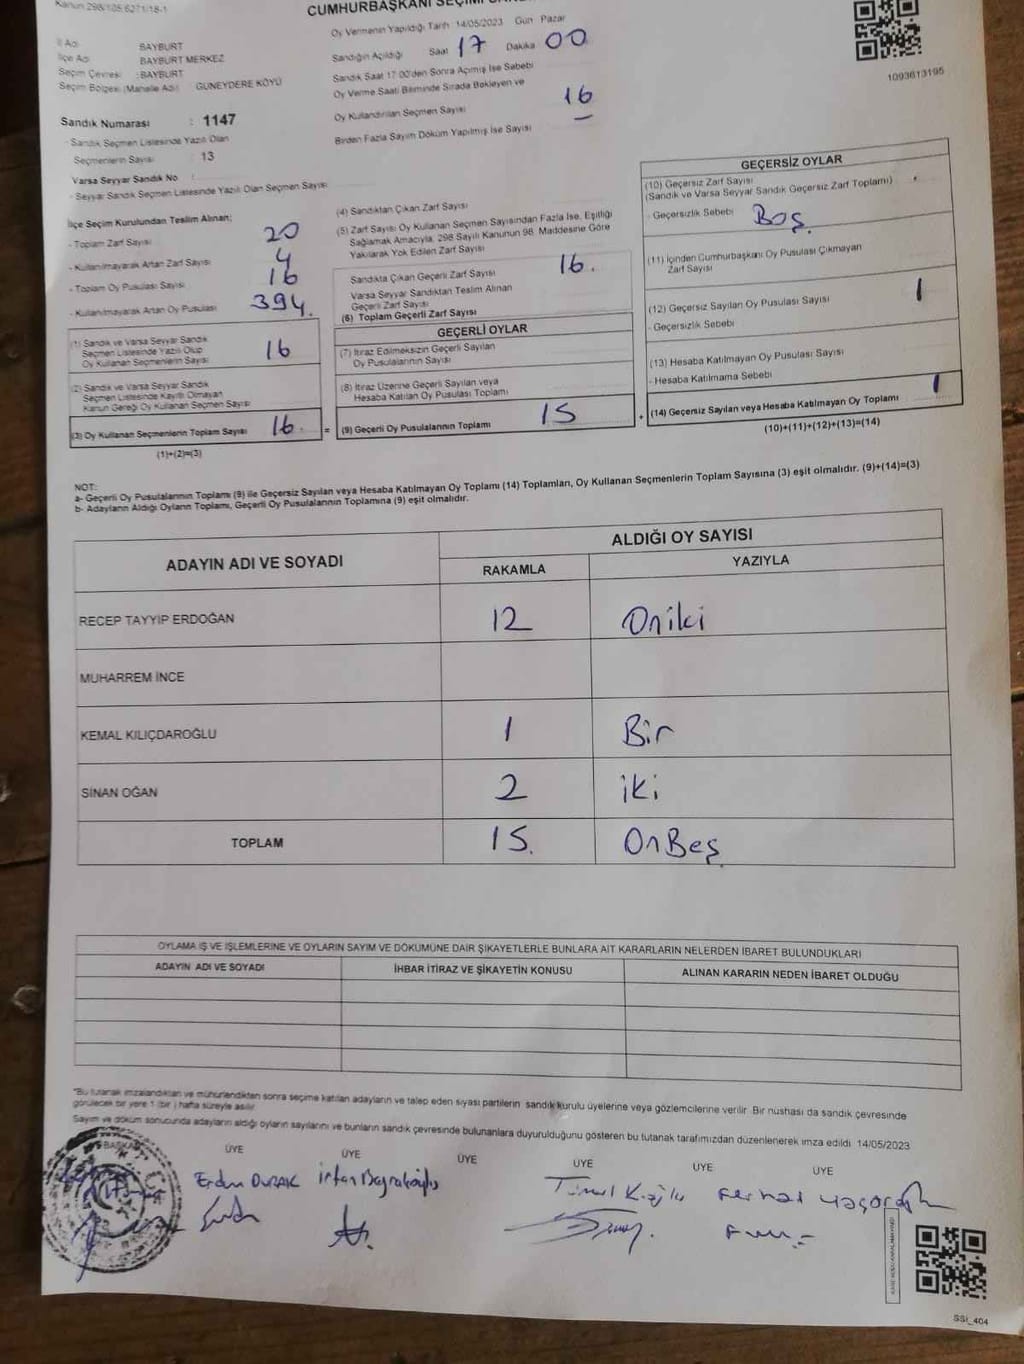 Kanun 298/105 6271/18-1
CUMHURBAŞKANI SEÇİMİ
Oy Vermenin Yapıldığı Tarih 14/05/2023 Gün Pazar
Sandığın Açıldığı Saat 17 Dakika 00
Sandık Saat 17 00'den Sonra Açılmış İse Sebebi
Oy Verme Saati Bitiminde Sırada Bekleyen ve
Oy Kullandırılan Seçmen Sayısı 16
Birden Fazla Sayım Döküm Yapılmış İse Sayısı –
İl Adı BAYBURT
İlçe Adı BAYBURT MERKEZ
Seçim Çevresi : BAYBURT
Seçim Bölgesi (Mahalle Adı) GÜNEYDERE KÖYÜ
1093613195
Sandık Numarası : 1147
- Sandık Seçmen Listesinde Yazılı Olan
Seçmenlerin Sayısı 13
Varsa Seyyar Sandık No :
- Seyyar Sandık Seçmen Listesinde Yazılı Olan Seçmen Sayısı
İlçe Seçim Kurulundan Teslim Alınan;
- Toplam Zarf Sayısı 20
- Kullanılmayarak Artan Zarf Sayısı 4
- Toplam Oy Pusulası Sayısı 16
- Kullanılmayarak Artan Oy Pusulası 394.
(1) Sandık ve Varsa Seyyar Sandık
Seçmen Listesinde Yazılı Olup
Oy Kullanan Seçmenlerin Sayısı 16
(2) Sandık ve Varsa Seyyar Sandık
Seçmen Listesinde Kayıtlı Olmayan
Kanun Gereği Oy Kullanan Seçmen Sayısı
(3) Oy Kullanan Seçmenlerin Toplam Sayısı 16. =
(1)+(2)=(3)
(4) Sandıktan Çıkan Zarf Sayısı
(5) Zarf Sayısı Oy Kullanan Seçmen Sayısından Fazla İse, Eşitliği
Sağlamak Amacıyla, 298 Sayılı Kanunun 98. Maddesine Göre
Yakılarak Yok Edilen Zarf Sayısı
Sandıkta Çıkan Geçerli Zarf Sayısı 16.
Varsa Seyyar Sandıktan Teslim Alınan
Geçerli Zarf Sayısı
(6) Toplam Geçerli Zarf Sayısı
GEÇERLİ OYLAR
(7) İtiraz Edilmeksizin Geçerli Sayılan
Oy Pusulalarının Sayısı
(8) İtiraz Üzerine Geçerli Sayılan veya
Hesaba Katılan Oy Pusulası Toplamı
(9) Geçerli Oy Pusulalarının Toplamı 15 +
GEÇERSİZ OYLAR
(10) Geçersiz Zarf Sayısı
(Sandık ve Varsa Seyyar Sandık Geçersiz Zarf Toplamı)
- Geçersizlik Sebebi Boş.
(11) İçinden Cumhurbaşkanı Oy Pusulası Çıkmayan
Zarf Sayısı
(12) Geçersiz Sayılan Oy Pusulası Sayısı 1
- Geçersizlik Sebebi
(13) Hesaba Katılmayan Oy Pusulası Sayısı
- Hesaba Katılmama Sebebi
(14) Geçersiz Sayılan veya Hesaba Katılmayan Oy Toplamı 1
(10)+(11)+(12)+(13)=(14)
NOT:
a- Geçerli Oy Pusulalarının Toplamı (9) ile Geçersiz Sayılan veya Hesaba Katılmayan Oy Toplamı (14) Toplamları, Oy Kullanan Seçmenlerin Toplam Sayısına (3) eşit olmalıdır. (9)+(14)=(3)
b- Adayların Aldığı Oyların Toplamı, Geçerli Oy Pusulalarının Toplamına (9) eşit olmalıdır.
ADAYIN ADI VE SOYADI ALDIĞI OY SAYISI
RAKAMLA YAZIYLA
RECEP TAYYİP ERDOĞAN 12 Oniki
MUHARREM İNCE
KEMAL KILIÇDAROĞLU 1 Bir
SİNAN OĞAN 2 iki
TOPLAM 15. OnBeş
OYLAMA İŞ VE İŞLEMLERİNE VE OYLARIN SAYIM VE DÖKÜMÜNE DAİR ŞİKAYETLERLE BUNLARA AİT KARARLARIN NELERDEN İBARET BULUNDUKLARI
ADAYIN ADI VE SOYADI İHBAR İTİRAZ VE ŞİKAYETİN KONUSU ALINAN KARARIN NEDEN İBARET OLDUĞU
*Bu tutanak imzalandıktan ve mühürlendikten sonra seçime katılan adayların ve talep eden siyasi partilerin sandık kurulu üyelerine veya gözlemcilerine verilir Bir nüshası da sandık çevresinde
görülecek bir yere 1 (bir ) hafta süreyle asılır
Sayım ve döküm sonucunda adayların aldığı oyların sayılarını ve bunların sandık çevresinde bulunanlara duyurulduğunu gösteren bu tutanak tarafımızdan düzenlenerek imza edildi 14/05/2023
BAŞKAN ÜYE ÜYE ÜYE ÜYE ÜYE ÜYE
Erdem DURAK İrfan Bayraktaroğlu
SSI_404